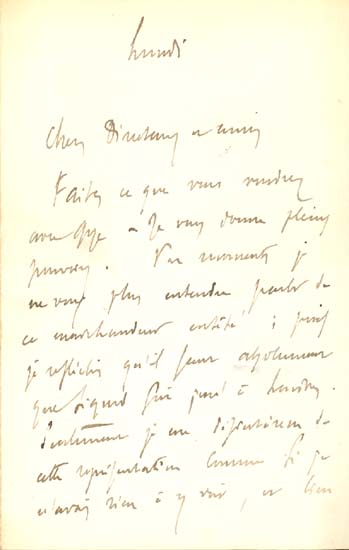 Lundi
Cher Directeur et ami
Faites ce que vous voudrez
avec Gye – Je vous donne pleins
pouvoirs. Par moments je
ne veux plus entendre parler de
ce marchandeur entêté ; puis
je réfléchis qu'il faut absolument
que Sigurd soit joué à Londres.
Seulement je me désintéresse de
cette représentation comme si je
n'avais rien à y voir, et bien